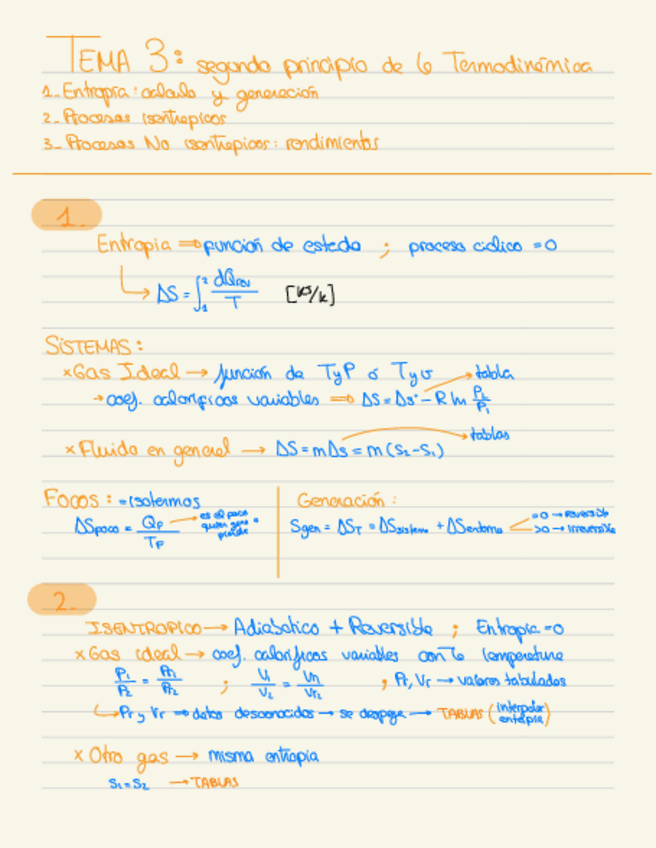 TEMA 3: segundo principio de la Termodinámica
1_ Entropía: cálculo y generación
2_ Procesos isentropicos
3_ Procesos No isentropicos: rendimientos
1
Entropia ⇒ función de estado ; proceso cíclico = 0
↳ ΔS = ∫₁² dQrev / T [kJ/k]
SISTEMAS:
×Gas Ideal → función de T y P ó T y v → tabla
→ coef. caloríficos variables ⇒ ΔS = Δs° - R ln P₂/P₁
× Fluido en general → ΔS = mΔs = m(s₂-s₁) → tablas
FOCOS: = isotermos
ΔSfoco = QF / TF → es el foco quien gana o pierde
Generación:
Sgen = ΔST = ΔSsistema + ΔSentorno =0 → reversible
>0 → irreversible
2.
ISENTROPICO → Adiabatico + Reversible ; Entropia = 0
×Gas ideal → coef. caloríficos variables con la temperatura
P₁/P₂ = Pr₁/Pr₂ ; V₁/V₂ = Vr₁/Vr₂ ; Pr, Vr → valores tabulados
↳ Pr y Vr ⇒ datos desconocidos → se despeja → TABLAS (interpolar entalpia)
× Otro gas → misma entropia
s₁ = s₂ → TABLAS